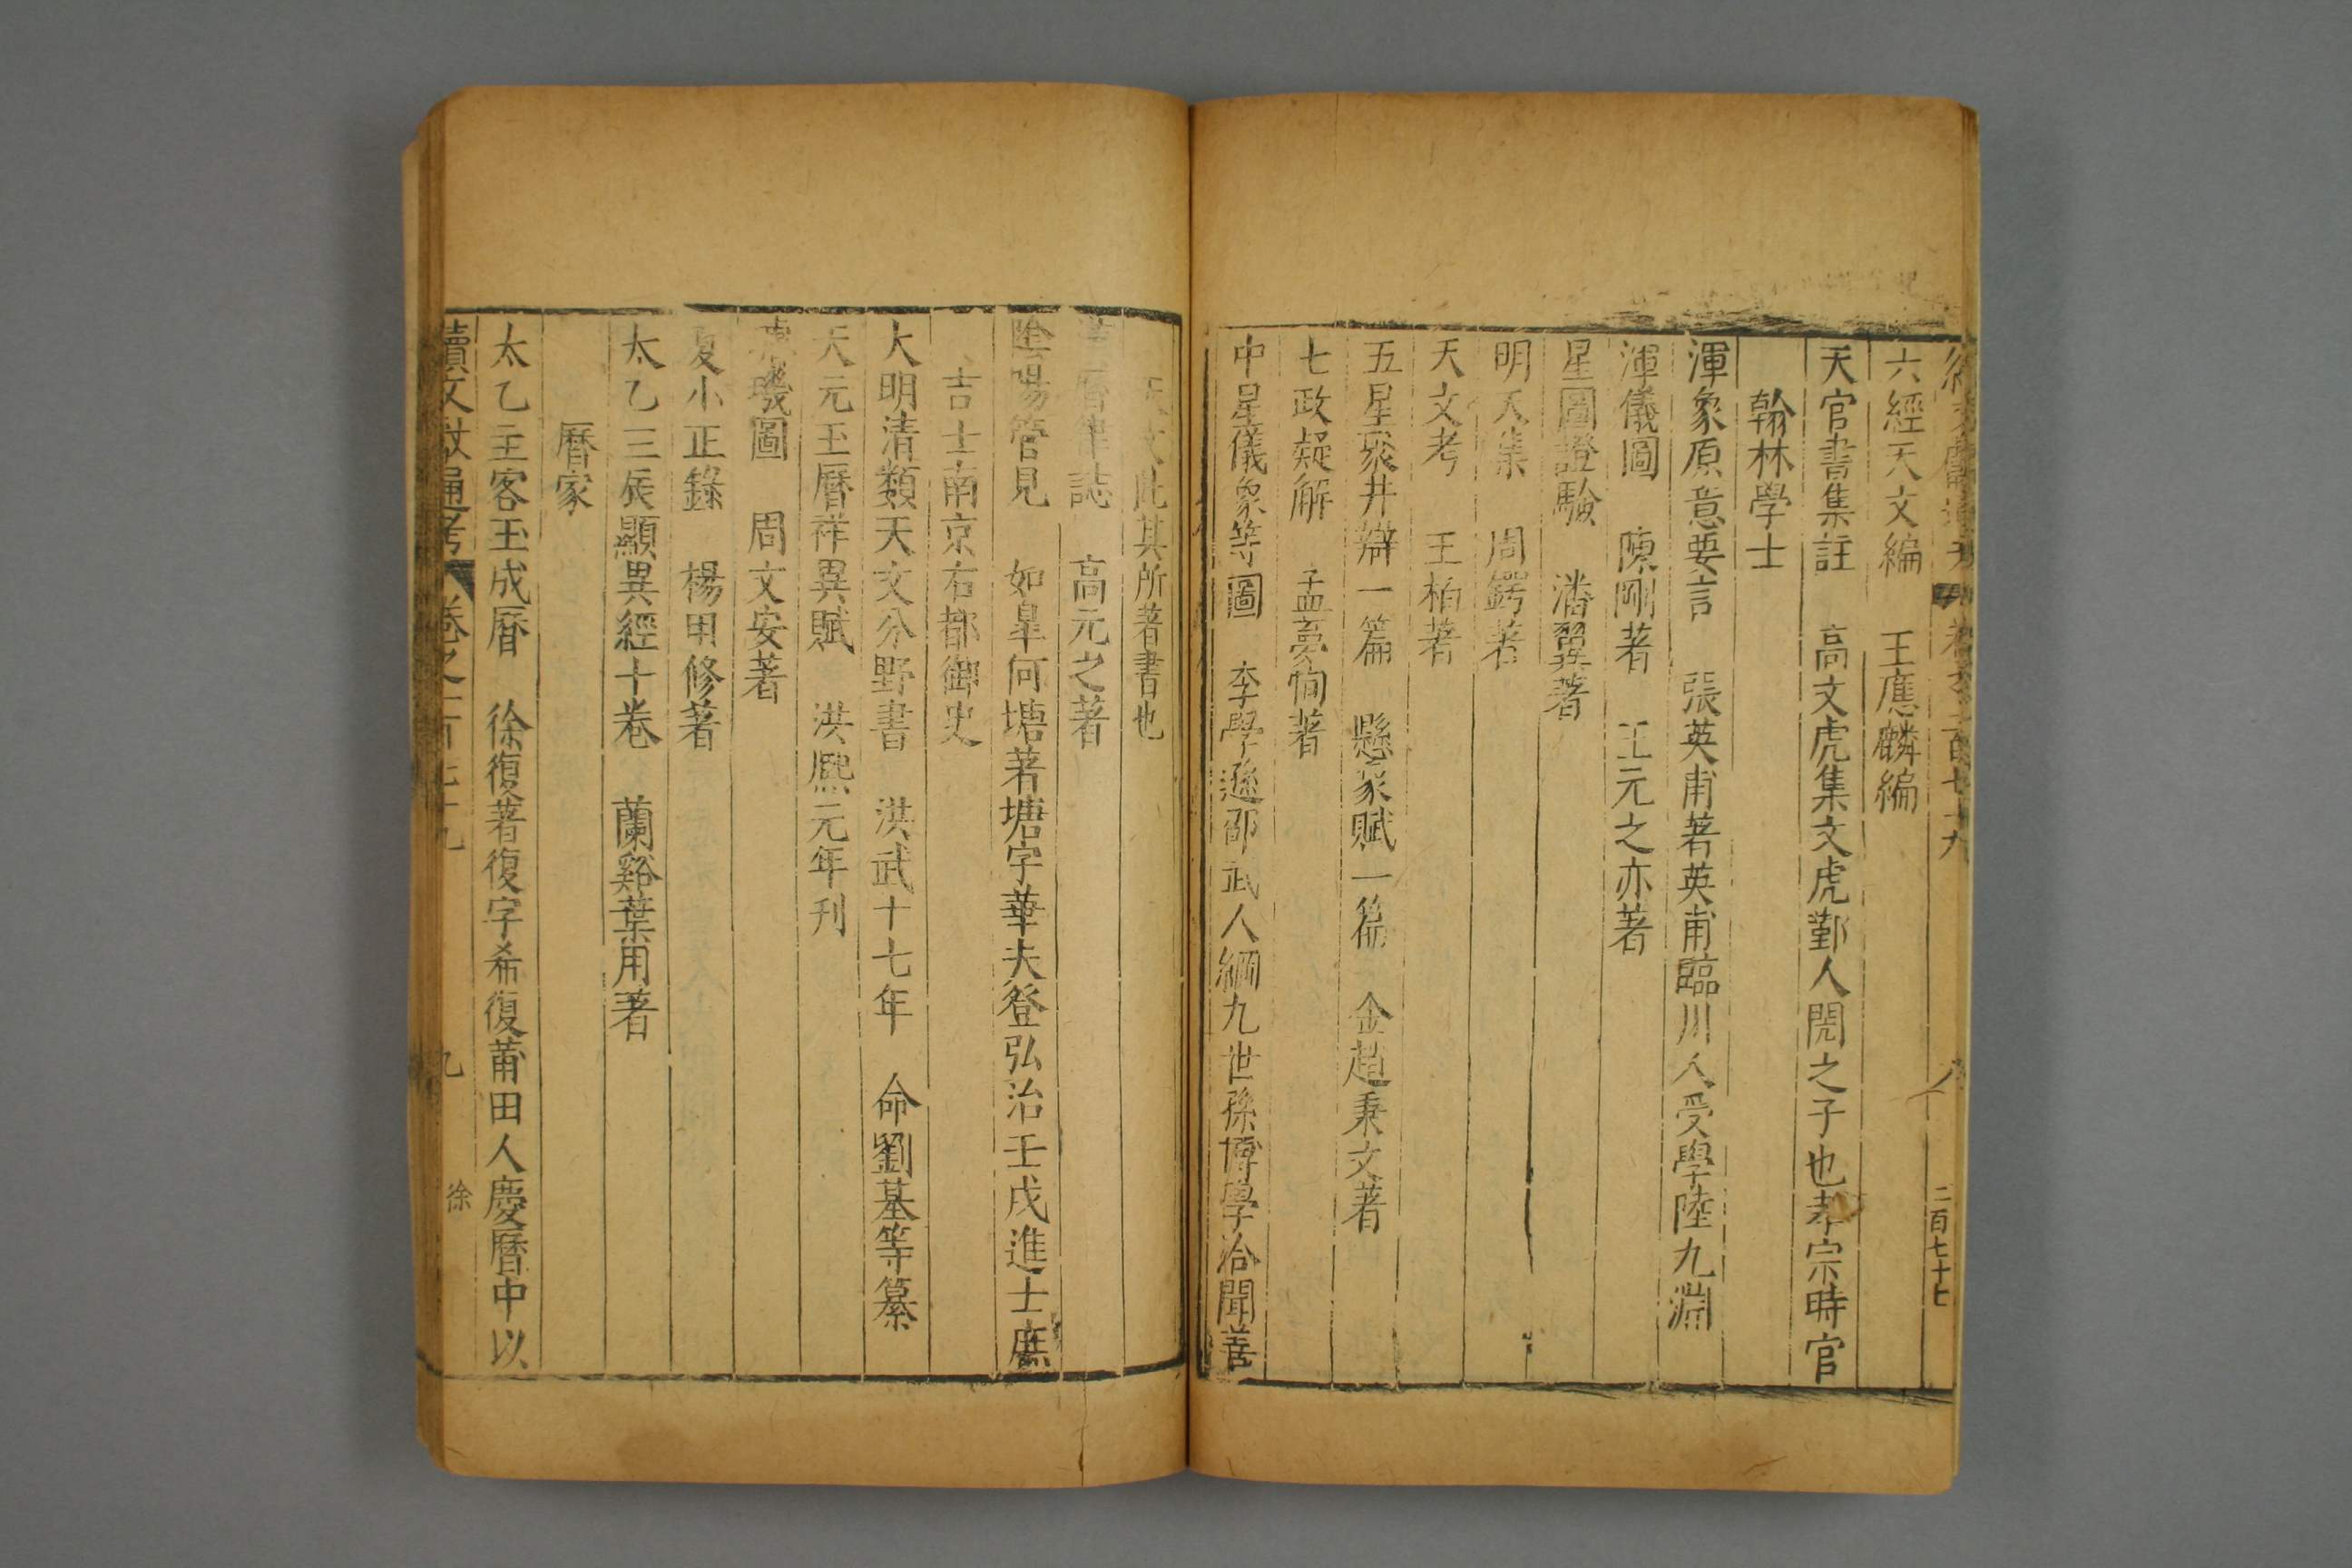 六經天文編　王應麟編
天官書集註　高文虎集文虎鄞人閌之子也孝宗時官
翰林學士
渾象原意要言　張英甫著英甫臨川人受學陸九淵
渾儀圖　陳剛著　王元之亦著
星圖證驗　潘翼著
明天集　周鍔著
天文考　王柏著
五星聚井辯一篇　懸象賦一篇　金趙秉文著
七政疑解　孟夢恂著
中星儀象等圖　李學遜邵武人綱九世孫博學洽聞善
天文此其所著書也
曆律誌　高元之著
陰陽管見　如皐何塘著塘字華夫登弘治壬戌進士庶
吉士南京右都御史
大明清類天文分野書　洪武十七年　命劉基等纂
天元玉曆祥異賦　洪熙元年刊
璣圖　周文安著
夏小正錄　楊用修著
太乙三辰顯異經十卷　蘭谿葉用著
曆家
太乙主客玉成曆　徐復著復字希復莆田人慶曆中以
續文献通考　卷之一百七十九　九　徐